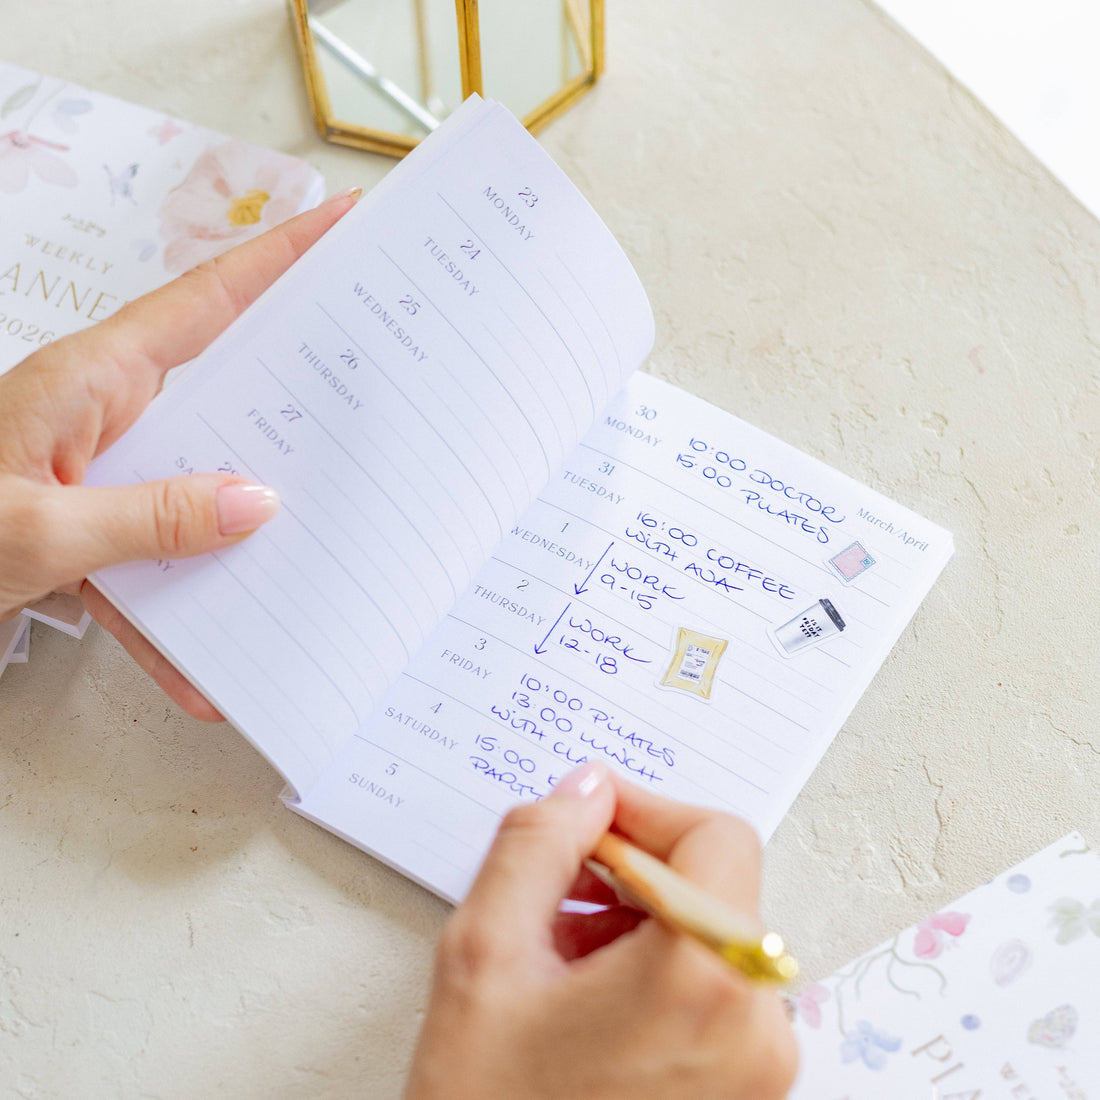 WEEKLY
2026
23
MONDAY
24
TUESDAY
25
WEDNESDAY
26
THURSDAY
27
FRIDAY
SA
March/April
30
MONDAY
10:00 DOCTOR
15:00 PILATES
31
TUESDAY
16:00 COFFEE
WITH AVA
1
WEDNESDAY
WORK
9-15
2
THURSDAY
WORK
12-18
3
FRIDAY
10:00 PILATES
13:00 LUNCH
WITH CLA
4
SATURDAY
15:00
PARTY
5
SUNDAY
IS IT
FRIDAY
YET?